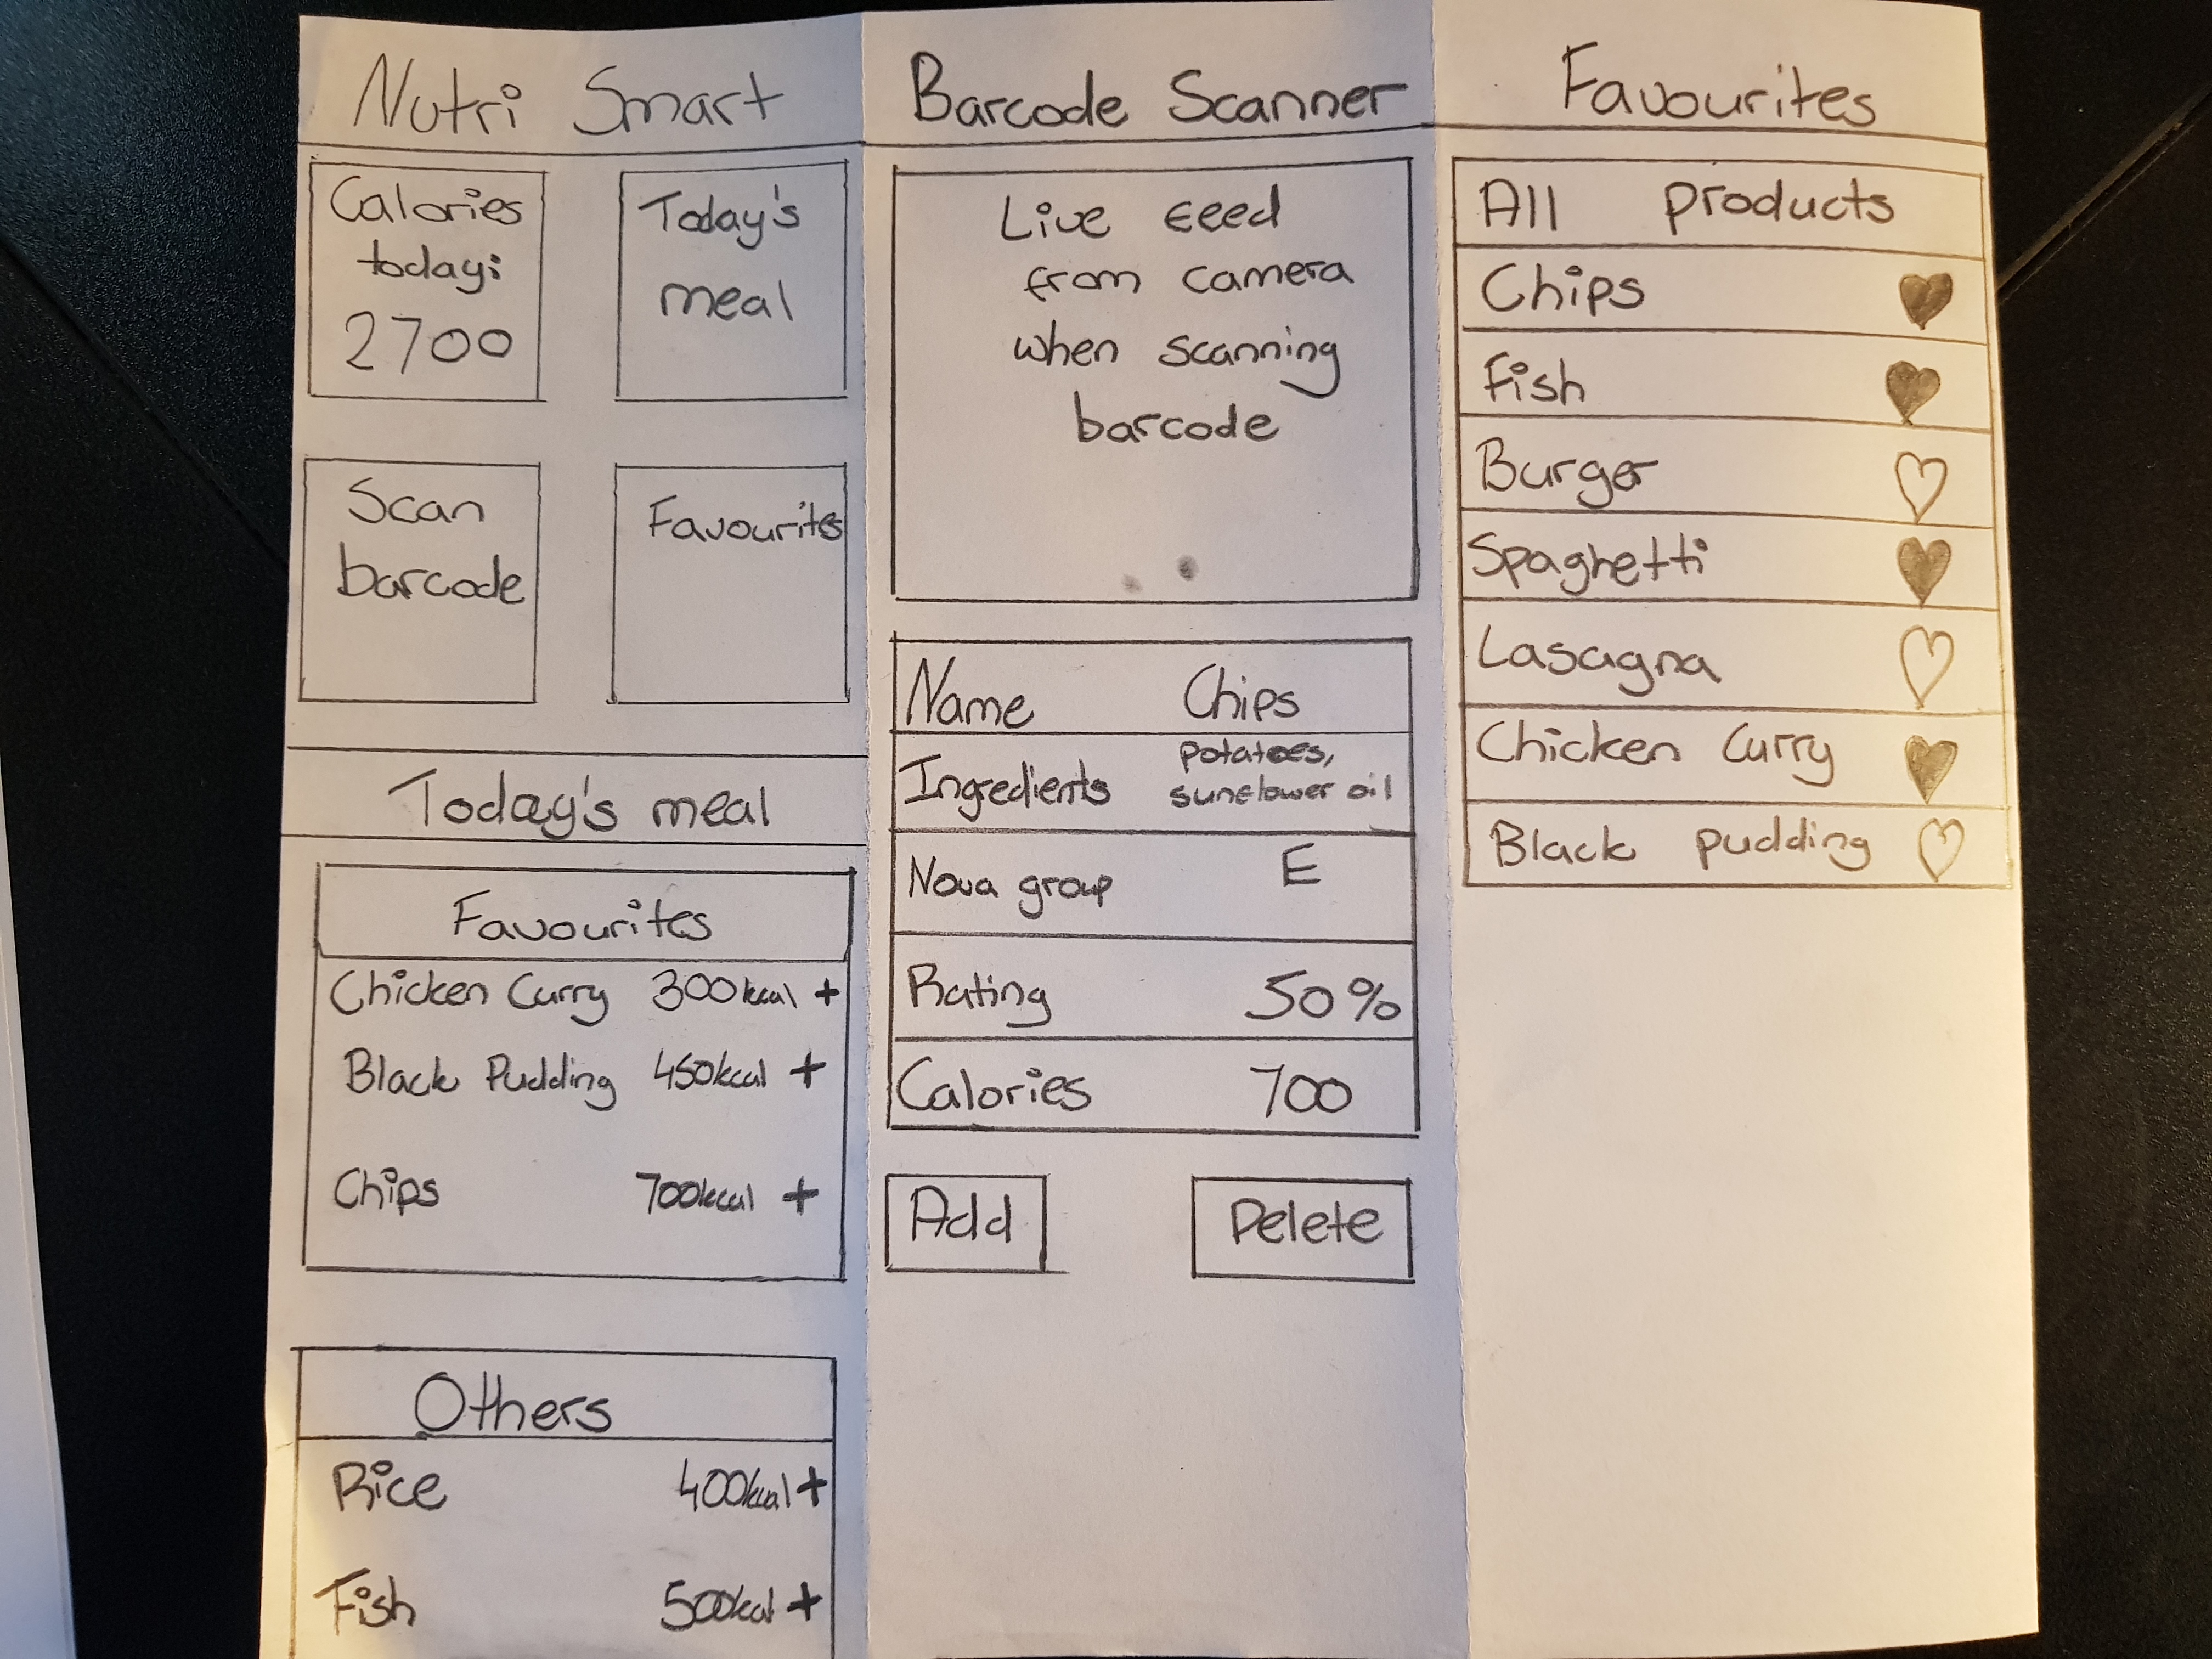 Nutri Smart
Calories
today:
2700
Today's
meal
Scan
barcode
Favourites
Today's meal
Favourites
Chicken Curry 300kcal +
Black Pudding 450kcal +
Chips 700kcal +
Others
Rice 400kcal +
Fish 500kcal +
Barcode Scanner
Live feed
from camera
when scanning
barcode
Name Chips
Ingredients potatoes,
sunflower oil
Nova group E
Rating 50%
Calories 700
Add Delete
Favourites
All products
Chips
Fish
Burger
Spaghetti
Lasagna
Chicken Curry
Black pudding